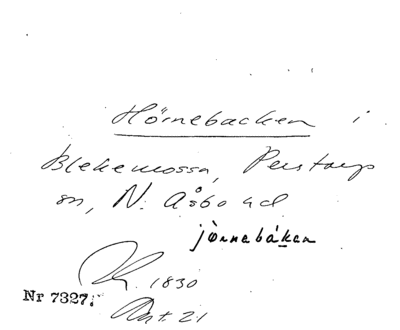 Hörnebacken i
Blekemossa, Perstorps
sn, N. Åsbo hd
jö̀rnebáken
1830
Nr 7327.
21